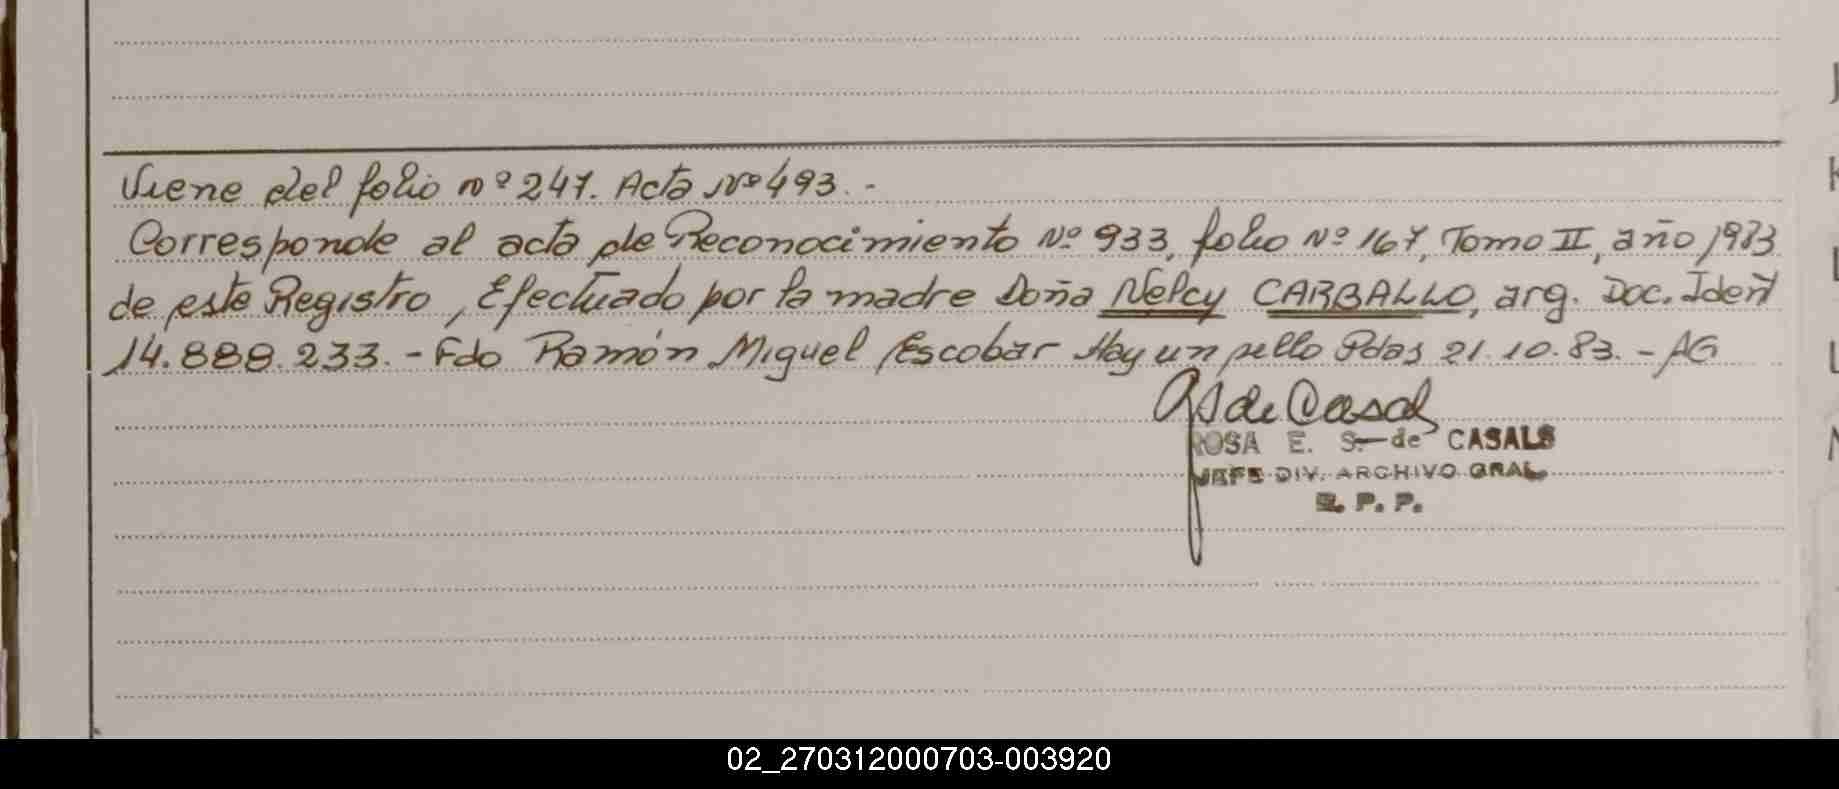 Viene del folio nº 247. Acta Nº 493.-
Corresponde al acta de Reconocimiento Nº 933, folio Nº 167, Tomo II, año 1983
de este Registro, Efectuado por la madre Doña Nelcy CARBALLO, arg. Doc. Ident
14.888.233.- Fdo Ramón Miguel Escobar Hay un sello Pdas 21.10.83.- AG
de Casals
ROSA E. S. de CASALS
JEFE DIV. ARCHIVO GRAL
R. P. P.
02_270312000703-003920